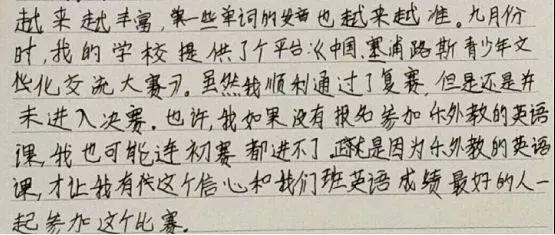 越来越丰富,第一些单词的发音也越来越准。九月份
时,我的学校提供了个平台:《中国.塞浦路斯青少年文
化交流大赛》。虽然我顺利通过了复赛,但是还是并
未进入决赛。也许,我如果没有报名参加乐外教的英语
课,我也可能连初赛都进不了.正是因为乐外教的英语
课,才让我有代这个信心和我们班英语成绩最好的人一
起参加这个比赛。